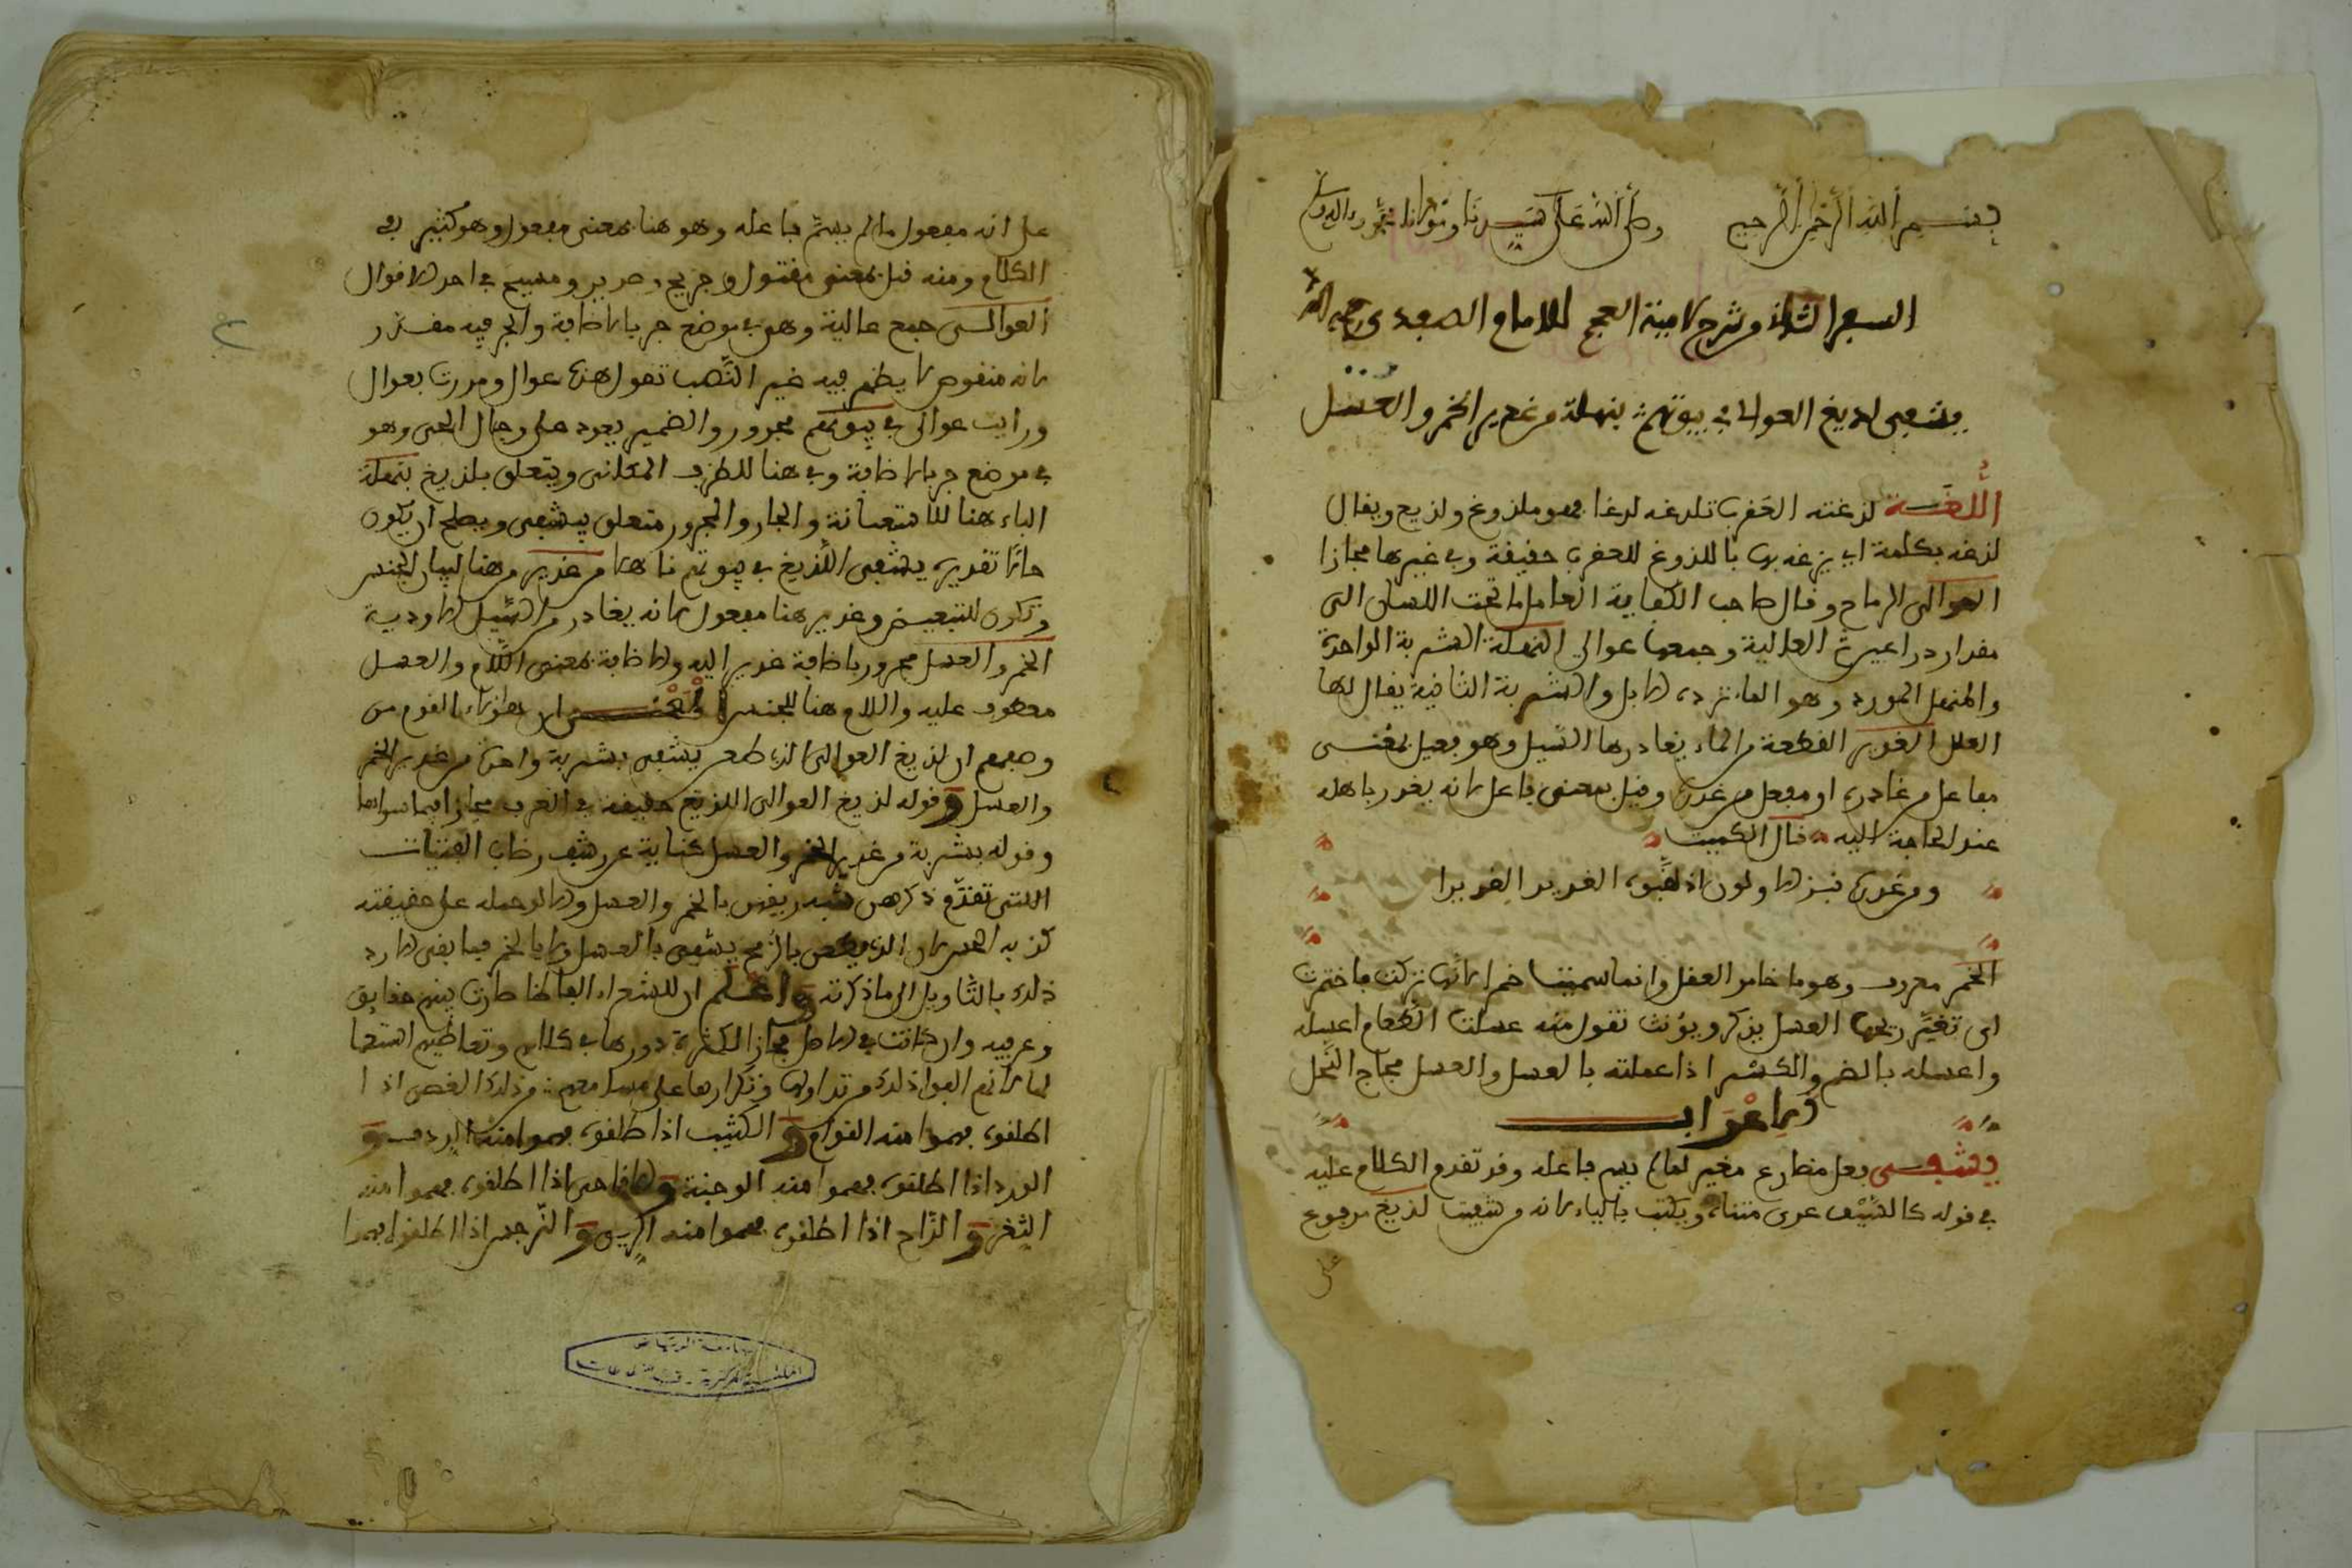 بسم الله الرحمن الرحيم وصلى الله على سيدنا ومولانا محمد وآله وسلم
السفر الثاني من شرح لامية العجم للامام الصفدي رحمه الله
يشفى لديغ العوالي في بيوتهم بنهلة من غدير الخمر والعسل
اللغة لدغته العقرب تلدغه لدغا فهو ملدوغ ولديغ ويقال
لدغه بكلمة اي نزغه بها فاللدوغ للعقرب حقيقة وفي غيرها مجازا
العوالي الرماح وقال صاحب الكفاية العامل ما تحت اللسان الى
مقدار ذراعين ثم العالية وجمعها عوالي النهلة الشربة الواحدة
والمنهل المورد وهو الماء ترده الابل والشربة الثانية يقال لها
العلل الغدير القطعة من الماء يغادرها السيل وهو فعيل بمعنى
مفاعل من غادره او مفعل من غدره وقيل بمعنى فاعل لانه يغدر باهله
عند الحاجة اليه قال الكميت
ومن غدره نبز الاولون اذ لقبوه الغدير الغديرا
الخمر معروف وهو ما خامر العقل وانما سميت خمرا لانها تركت فاختمرت
اى تغير ريحها العسل يذكر ويؤنث تقول منه عسلت الطعام اعسله
واعسله بالضم والكسر اذا عملته بالعسل والعسل مجاج النحل
الاعراب
يشفى فعل مضارع مغير لما لم يسم فاعله وقد تقدم الكلام عليه
في قوله كالسيف عرى متناه ويكتب بالياء لانه من شفيت لديغ مرفوع
على
على انه مفعول ما لم يسم فاعله وهو هنا بمعنى مفعول وهو كثير في
الكلام ومنه قتيل بمعنى مقتول وجريح وصرير ومسيح في احد الاقوال
العوالي جمع عالية وهو في موضع جر بالاضافة والجر فيه مقدر
لانه منقوص لا يظهر فيه غير النصب تقول هذه عوال ومررت بعوال
ورايت عوالي في بيوتهم مجرور والضمير يعود على رجال الحي وهو
في موضع جر بالاضافة وفي هنا للظرف المكاني ويتعلق بلديغ بنهلة
الباء هنا للاستعانة والجار والمجرور متعلق بيشفى ويصلح ان يكون
حالا تقديره يشفى اللديغ في بيوتهم ناهلا من غدير من هنا لبيان الجنس
وتكون للتبعيض وغدير هنا مفعول لانه يغادر من السيل الاودية
الخمر والعسل مجرور باضافة غدير اليه والاضافة بمعنى اللام والعسل
معطوف عليه واللام هنا للجنس المعنى ان هؤلاء القوم من
وصفهم ان لديغ العوالي اذا طعن يشفى بشربة واحدة من غدير الخمر
والعسل وقوله لديغ العوالي اللديغ حقيقة في العقرب مجاز فيما سواها
وقوله بشربة من غدير الخمر والعسل كناية عن رشف رضاب الفتيات
اللتي تقدم ذكرهن شبه ريقهن بالخمر والعسل والا لو حمله على حقيقته
كذبه الحس لان الذي يطعن بالرمح يشفى بالعسل ولا بالخمر فما بقي الا رد
ذلك بالتاويل الى ما ذكرته واعلم ان للشعراء الفاظا صارت بينهم حقايق
وعرفية وان كانت في الاصل مجاز لكثرة دورها في كلامهم وتعاطيهم استعما
لها لانهم الفوا ذلك من تداولها وتكرارها على مسامعهم فمن ذلك الغصن اذا
اطلقوه فهموا منه القوام والكثيب اذا اطلقوه فهموا منه الردف و
الورد اذا اطلقوه فهموا منه الوجنة والاقاحي اذا اطلقوه فهموا منه
الثغر والراح اذا اطلقوه فهموا منه الريق والنرجس اذا اطلقوا فهموا
جامعة الرياض
المكتبة المركزية - قسم المخطوطات